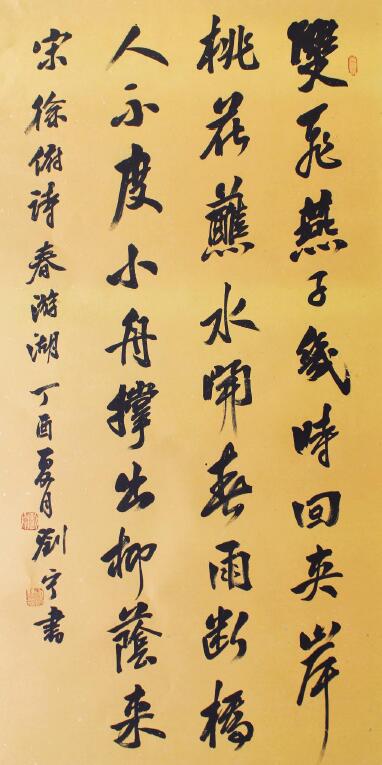 雙飛燕子幾時回夾岸
桃花蘸水開春雨斷橋
人不度小舟撐出柳蔭来
宋徐俯詩春游湖丁酉夏月劉宁書